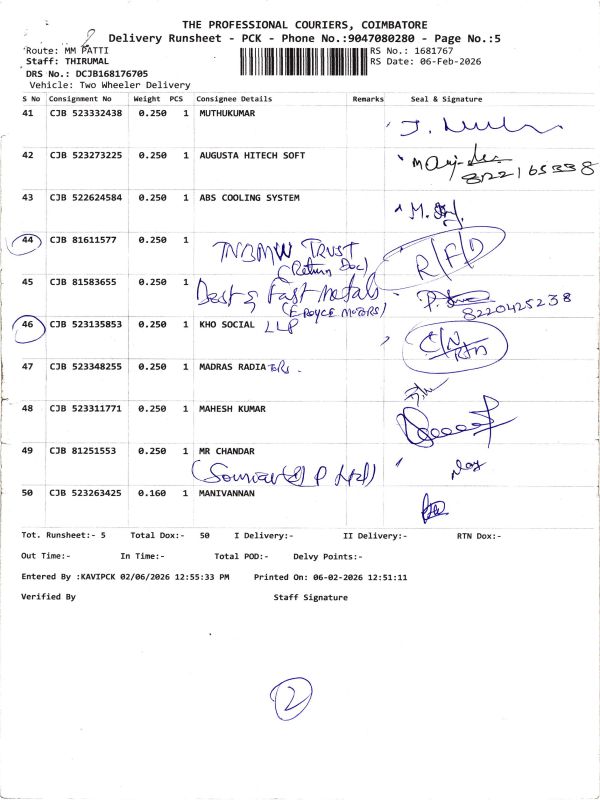 THE PROFESSIONAL COURIERS, COIMBATORE
Delivery Runsheet - PCK - Phone No.:9047080280 - Page No.:5
Route: MM PATTI
RS No.: 1681767
Staff: THIRUMAL
RS Date: 06-Feb-2026
DRS No.: DCJB168176705
Vehicle: Two Wheeler Delivery
S No Consignment No Weight PCS Consignee Details Remarks Seal & Signature
41 CJB 523332438 0.250 1 MUTHUKUMAR
42 CJB 523273225 0.250 1 AUGUSTA HITECH SOFT
8122165338
43 CJB 522624584 0.250 1 ABS COOLING SYSTEM
44 CJB 81611577 0.250 1
TNBMW TRUST R/F/D
(Return Doc)
45 CJB 81583655 0.250 1 Best & Fast Metals
(E ROYCE MOTORS) 8220425238
46 CJB 523135853 0.250 1 KHO SOCIAL LLP
C/N
RTN
47 CJB 523348255 0.250 1 MADRAS RADIATORS.
48 CJB 523311771 0.250 1 MAHESH KUMAR
49 CJB 81251553 0.250 1 MR CHANDAR
50 CJB 523263425 0.160 1 MANIVANNAN
Tot. Runsheet:- 5 Total Dox:- 50 I Delivery:- II Delivery:- RTN Dox:-
Out Time:- In Time:- Total POD:- Delvy Points:-
Entered By :KAVIPCK 02/06/2026 12:55:33 PM Printed On: 06-02-2026 12:51:11
Verified By Staff Signature
2